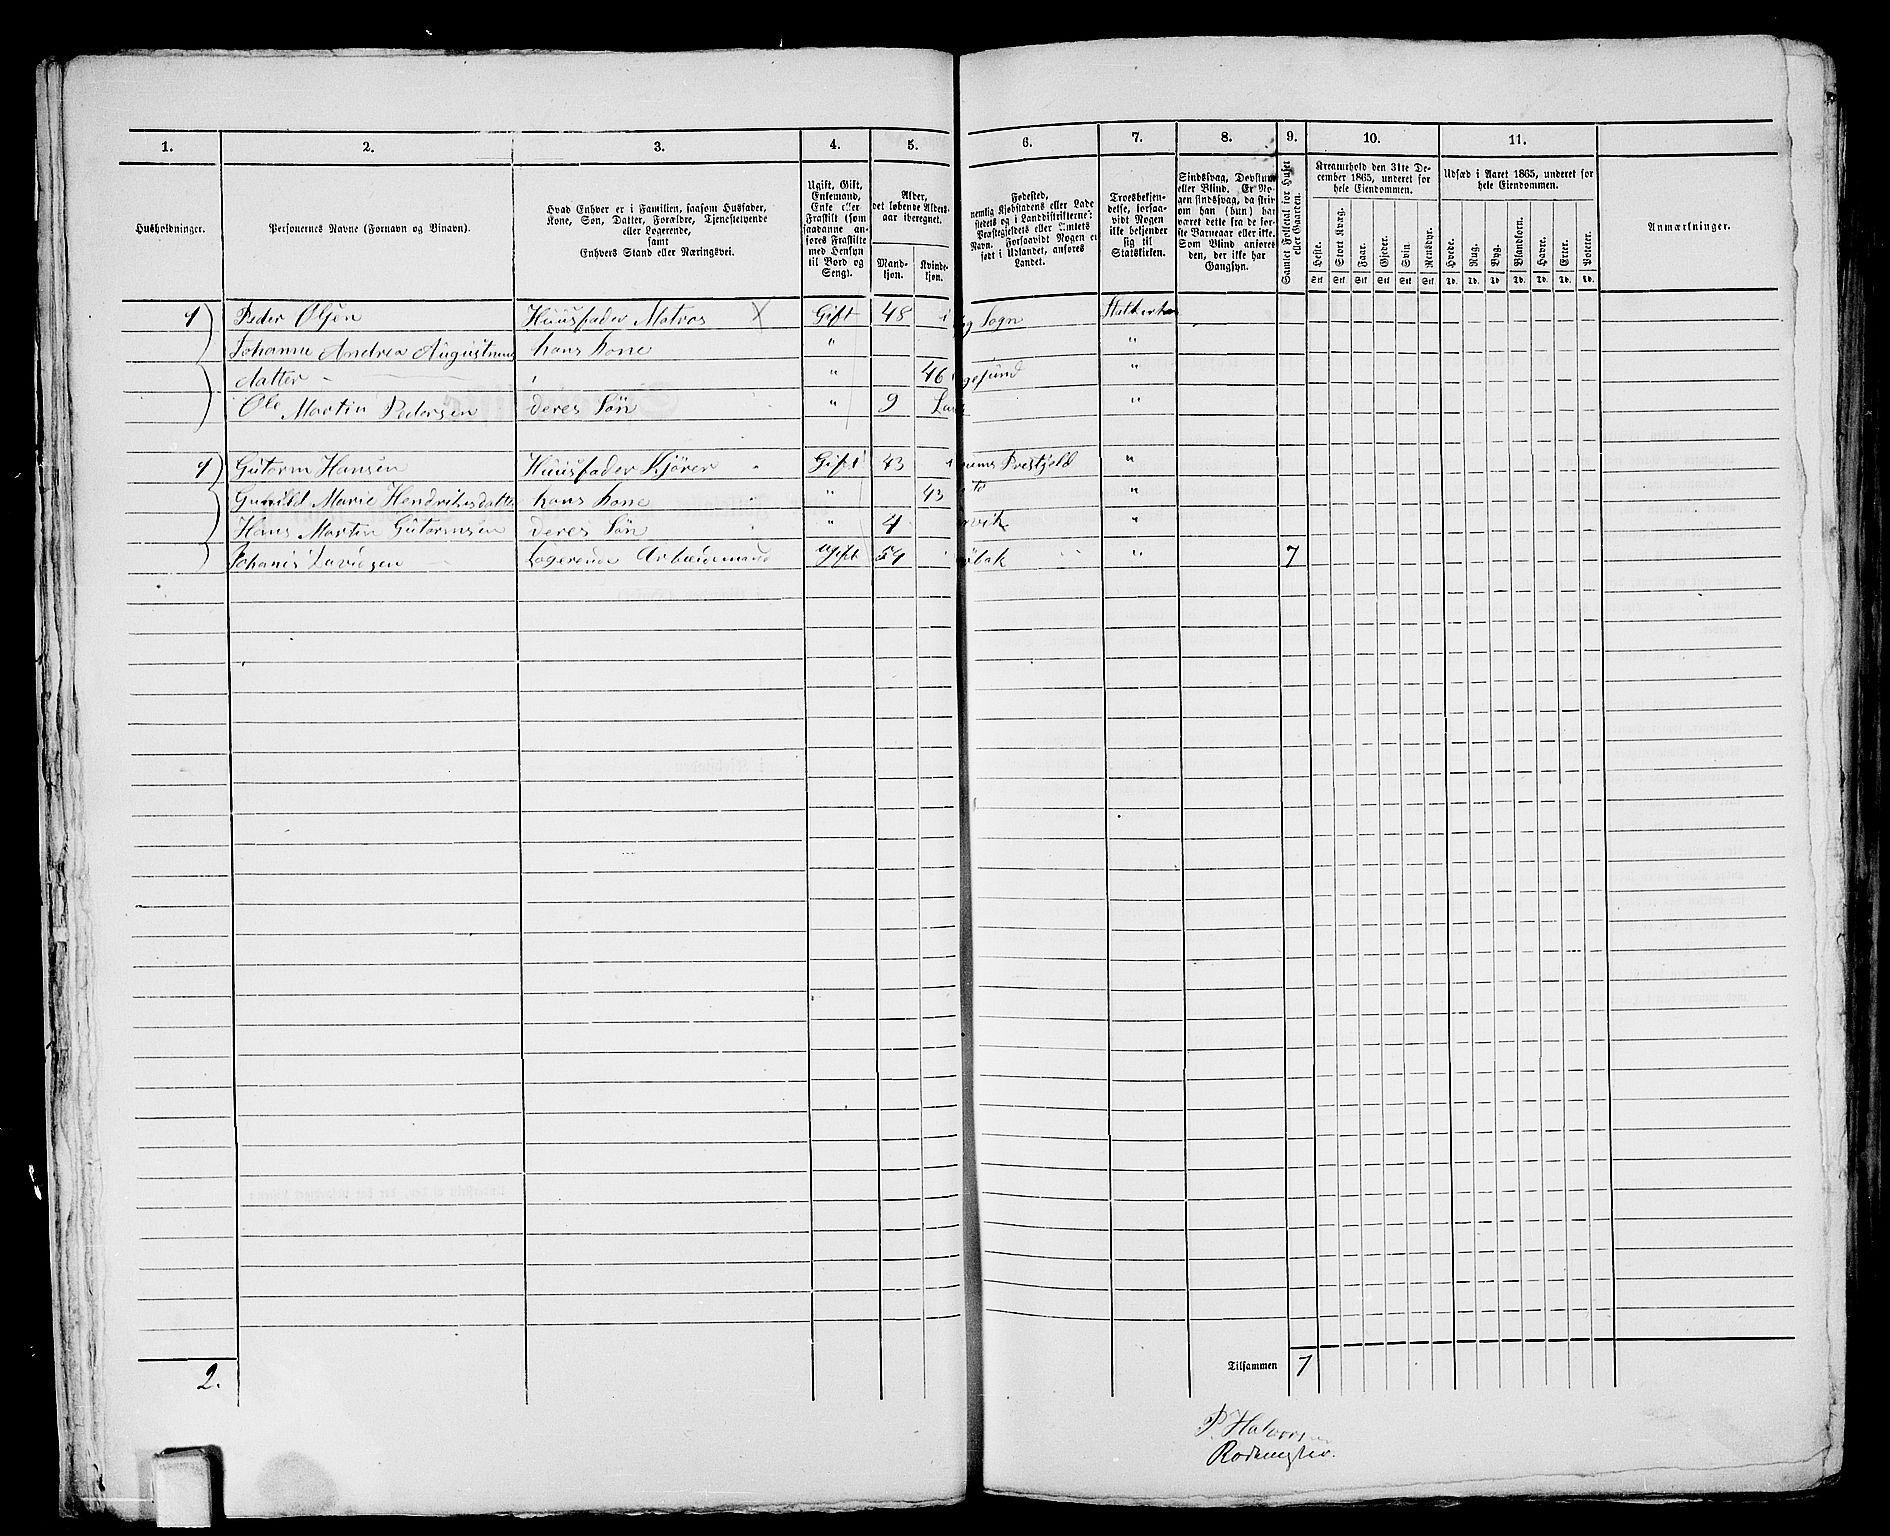 1. 2. 3. 4. 5. 6. 7. 8. 9. 10. 11.
Husholdninger.
Personernes Navne (Fornavn og Binavn).
Hvad Enhver er i Familien, saasom Husfader,
Kone, Søn, Datter, Forældre, Tjenestetyende
eller Logerende,
samt
Enhvers Stand eller Næringsvei.
Ugift, Gift,
Enkemand,
Enke eller
Fraskilt (som
saadanne an-
føres Fraskilte
med Hensyn
til Bord og
Seng).
Alder,
det løbende Alders-
aar iberegnet.
Mand-
kjøn.
Kvinde-
kjøn.
Fødested,
nemlig Kjøbstadens eller Lade
stedets og i Landdistrikterne:
Præstegjeldets eller Amtets
Navn. Forsaavidt Nogen er
født i Udlandet, anføres
Landet.
Troesbekjen-
delse, forsaa-
vidt Nogen
ikke bekjender
sig til
Statskirken.
Sindssvag, Døvstum
eller Blind. Er No-
gen sindssvag, da skriv
om han (hun) har
været dette fra de før-
ste Barneaar eller ikke.
Som Blind anføres
den, der ikke har
Gangsyn.
Samlet Folketal for Huset
eller Gaarden.
Kreaturhold den 31te De-
cember 1865, underet for
hele Eiendommen.
Heste. Stort Kvæg. Faar. Gjeder. Svin. Rensdyr.
Stk Stk Stk Stk Stk Stk
Udsæd i Aaret 1865, underet for
hele Eiendommen.
Hvede. Rug. Byg. Blandkorn. Havre. Erter. Poteter.
Td. Td. Td. Td. Td. Td. Td.
Anmærkninger.
1 Peder Olsen Huusfader Matros X Gift 48 i Sogn
Johanne Andrea Augustinus hans Kone " "
datter " 46 "
Ole Martin Pedersen deres Søn " 9 "
1 Gutorm Hansen Huusfader Kjører Gift 43 i Prestjeld "
Gunild Marie Hendriksdatter hans Kone " 43 "
Hans Martin Gutormsen deres Søn " 4 "
Johanis Davidsen Logerende Arbeidsmand Ugift 54 i "  7
2.
Tilsammen 7
P. Halvorsen